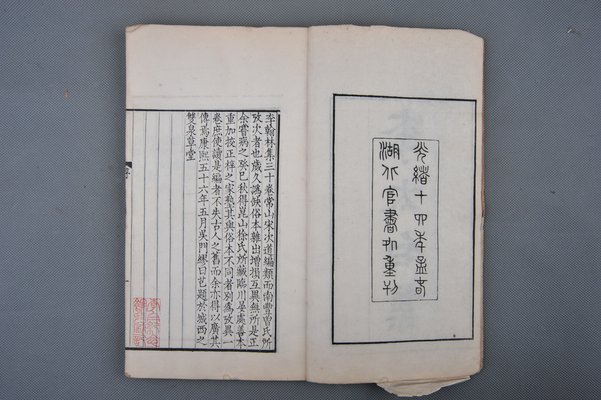 光緒十四年孟春
湖北官書処重刊
李翰林集三十卷常山宋次道編類而南豐曾氏所
攷次者也歲久譌缺俗本雜出增損互異無所是正
余嘗病之癸巳秋得崑山徐氏所藏臨川晏處善本
重加校正梓之家塾其與俗本不同者別為攷異一
卷庶使讀是編者不失古人之舊而余亦得以廣其
傳焉康熙五十六年五月吳門繆曰芑題於城西之
雙泉草堂